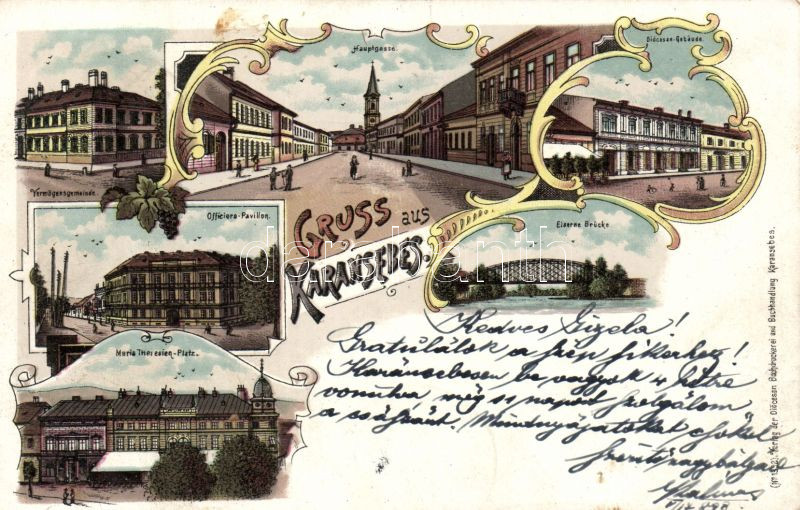 Hauptgasse.
Diöcesan-Gebäude.
Vermögensgemeinde.
Officiers-Pavillon.
GRUSS aus
KARANSEBES.
Eiserne Brücke
Maria Theresien-Platz.
Kedves Gizela!
Gratulálok a szép sikerhez!
Karánsebesen be vagyok 4 hétre
vonulva még 11 napot szolgálom
a császárt. Mindnyájatokat csókol
szerető nagybátyád
Verlag der Diöcesan Buchdruckerei und Buchhandlung Karansebes.
darabanth